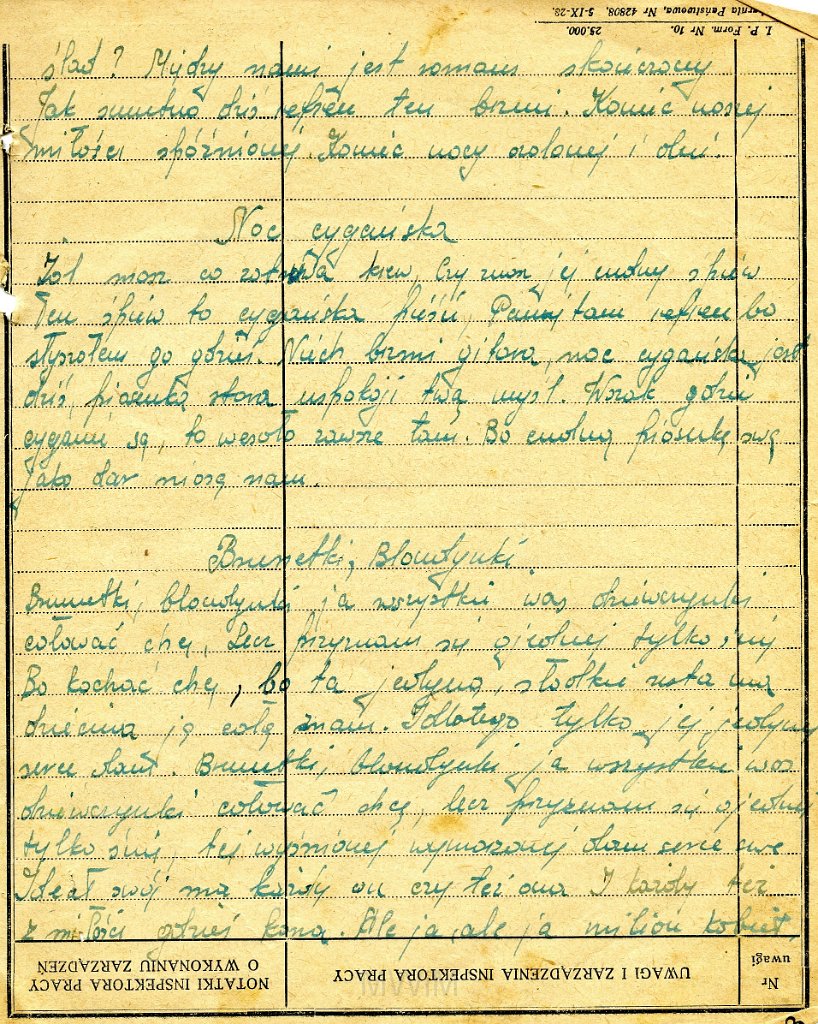 I. P. Form. Nr 10. 25.000.
Państwowa, Nr 42808. 5-IX-28.
ślad? Między nami jest romans skończony
Jak smutno dziś refren ten brzmi. Koniec naszej
miłości spóźnionej. Koniec nocy szalonej i dni.
Noc cygańska
Żal masz co zatruwa krew, Czy znasz jej cudny śpiew
Ten śpiew to cygańska pieśń, Pamiętam refren bo
słyszołem go gdzieś. Niech brzmi gitara, noc cygańska jest
dziś, piosenka stara uspokoji twą myśl. Wszak gdzie
cyganie są, to wesoło zawsze tam. Bo cudną piosnkę swą
jako dar niosą nam.
Brunetki, Blondynki
Brunetki, blondynki ja wszystkie was dziewczynki
cołować chcę, Lecz przyznam się q jednej tylko śnię
Bo kochać chcę, bo ta jedyna, słodkie usta ma
dziecina ją całą znam. I dlatego tylko jej jedynej
serce dam. Brunetki, blondynki ja wszystkie was
dziewczynki cołować chcę, lecz przyznam się o jednej
tylko śnię, tej wyśnionej wymarzonej dam serce swe
Ideał swój ma każdy on czy też ona I każdy też
z miłości gdzieś kona. Ale ja, ale ja milion kobiet,
NOTATKI INSPEKTORA PRACY O WYKONANIU ZARZĄDZEŃ
UWAGI I ZARZĄDZENIA INSPEKTORA PRACY
Nr uwagi